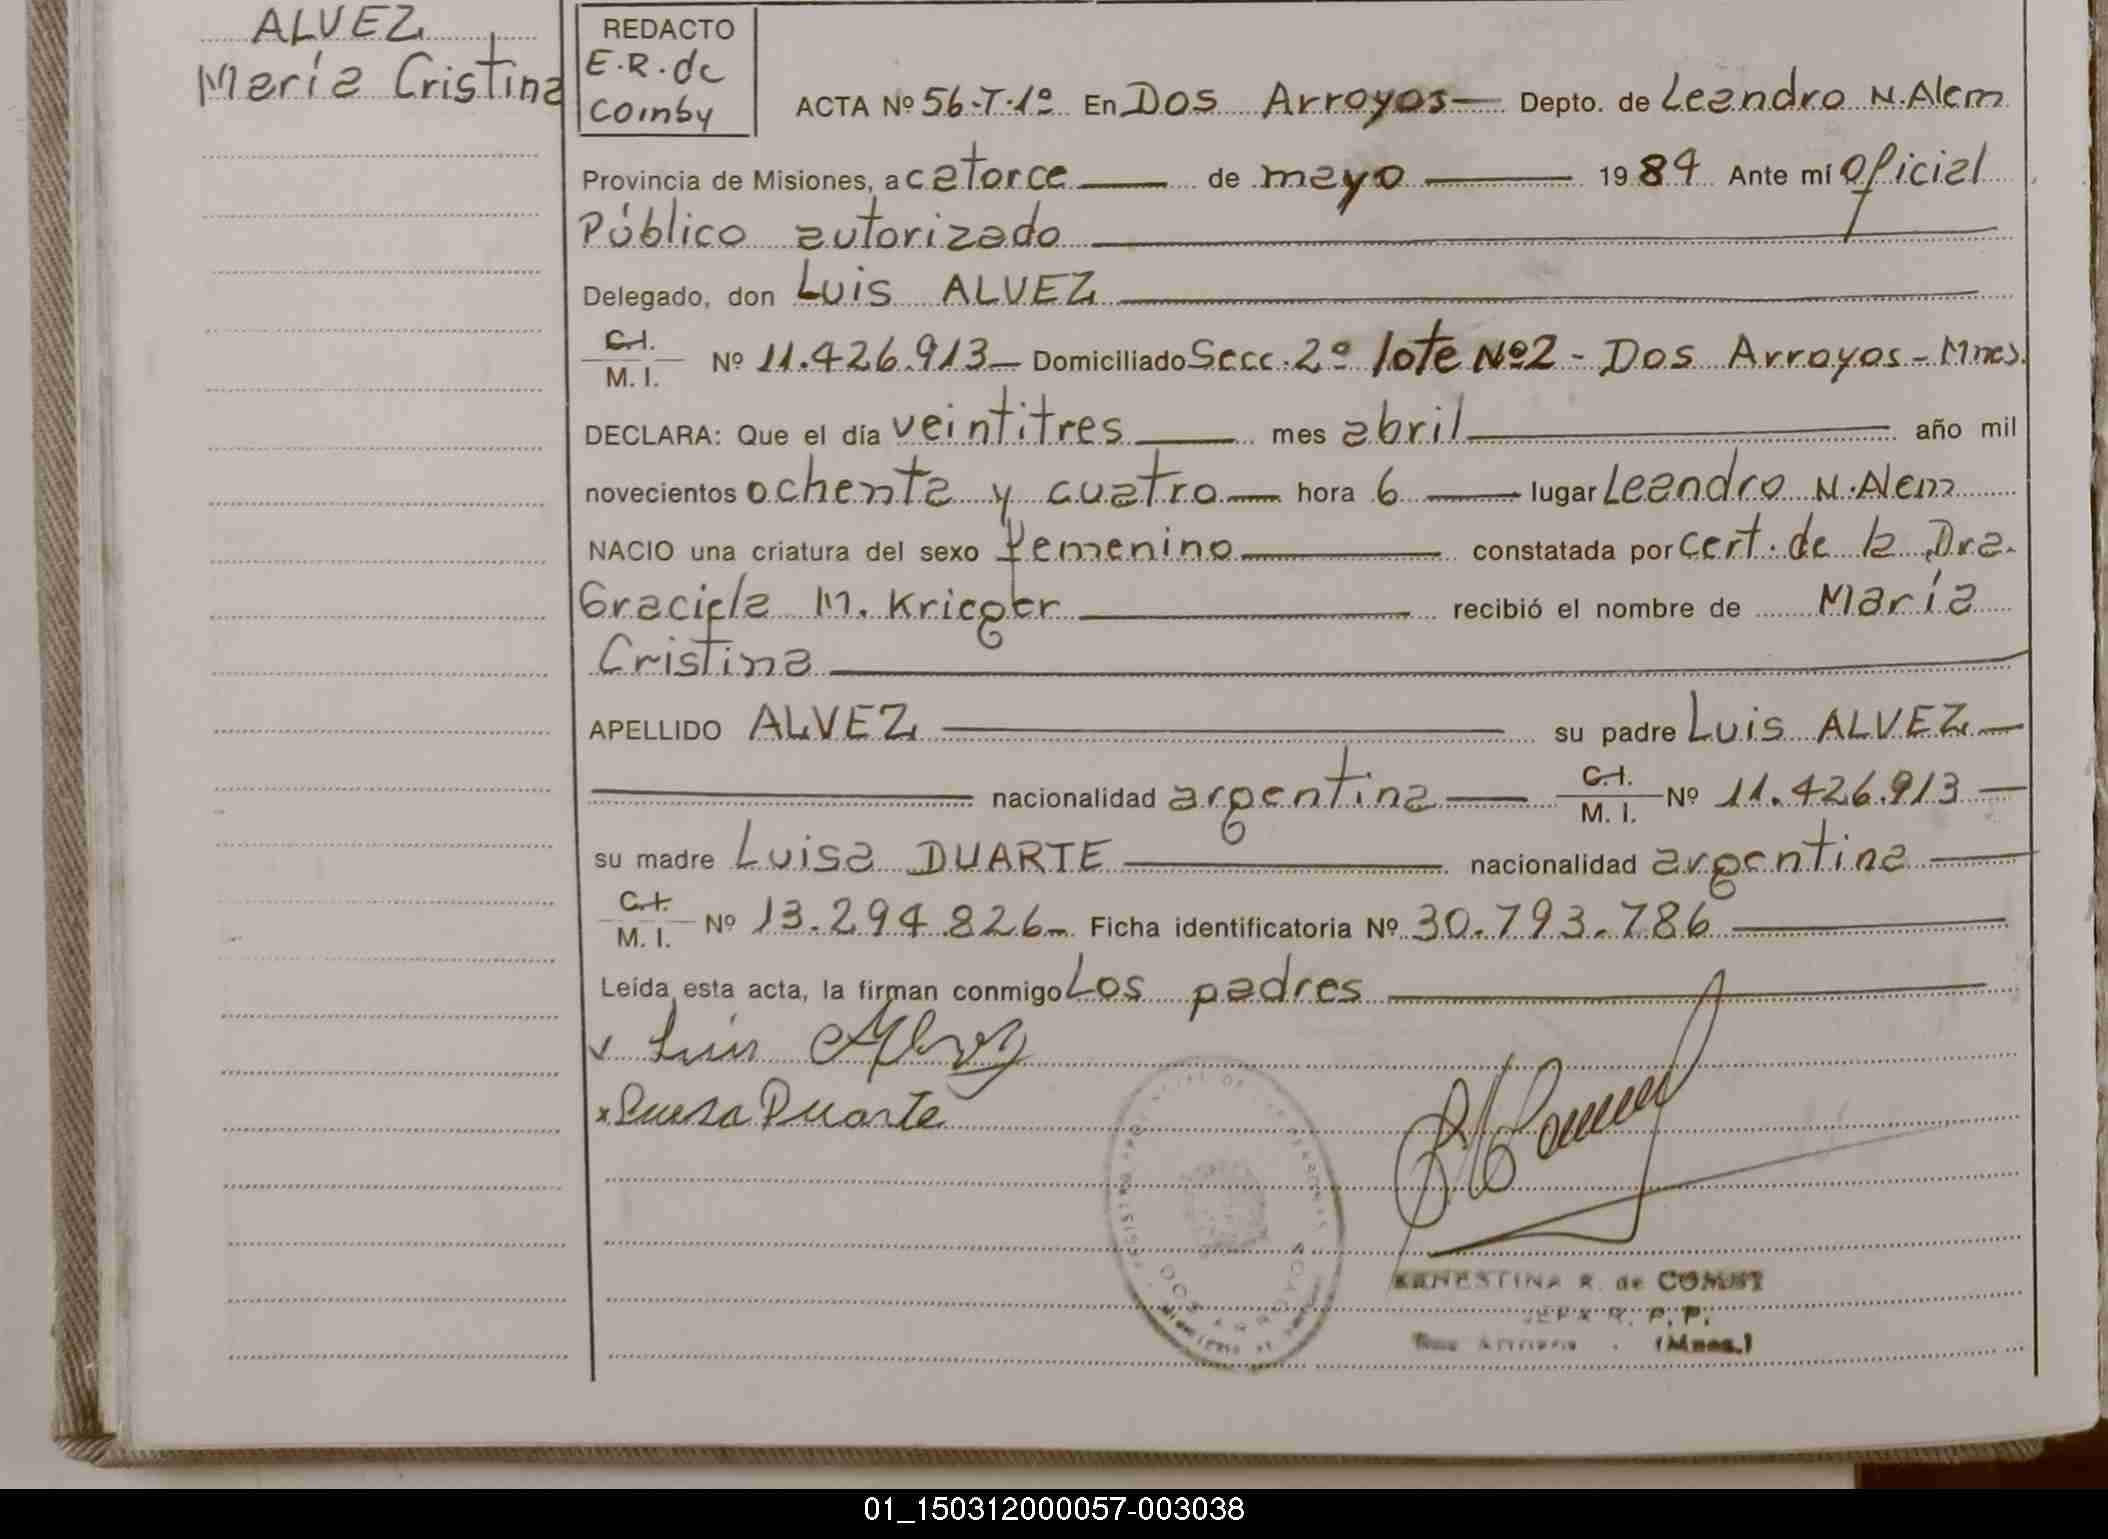 ALVEZ
María Cristina
REDACTO
E.R. de
Comby
ACTA Nº 56-T-1º En Dos Arroyos— Depto. de Leandro N. Alem
Provincia de Misiones, a catorce —— de mayo —— 1984 Ante mí Oficial
Público autorizado ——
Delegado, don Luis ALVEZ ——
C.I.
M. I.
Nº 11.426.913— Domiciliado Secc. 2º lote Nº2 - Dos Arroyos - Mnes.
DECLARA: Que el día veintitres —— mes abril —— año mil
novecientos ochenta y cuatro — hora 6 —— lugar Leandro N. Alem
NACIO una criatura del sexo femenino —— constatada por cert. de la Dra.
Graciela M. Krieger —— recibió el nombre de María
Cristina ——
APELLIDO ALVEZ —— su padre Luis ALVEZ —
—— nacionalidad argentina —— C.I.
M. I.
Nº 11.426.913 —
su madre Luisa DUARTE —— nacionalidad argentina ——
C.I.
M. I.
Nº 13.294.826— Ficha identificatoria Nº 30.793.786 ——
Leída esta acta, la firman conmigo Los padres ——
Luis Alvez
x Luisa Duarte
ERNESTINA R. de COMBY
JEFA R. P. P.
Dos Arroyos - (Mnes.)
DOS ARROYOS
01_150312000057-003038